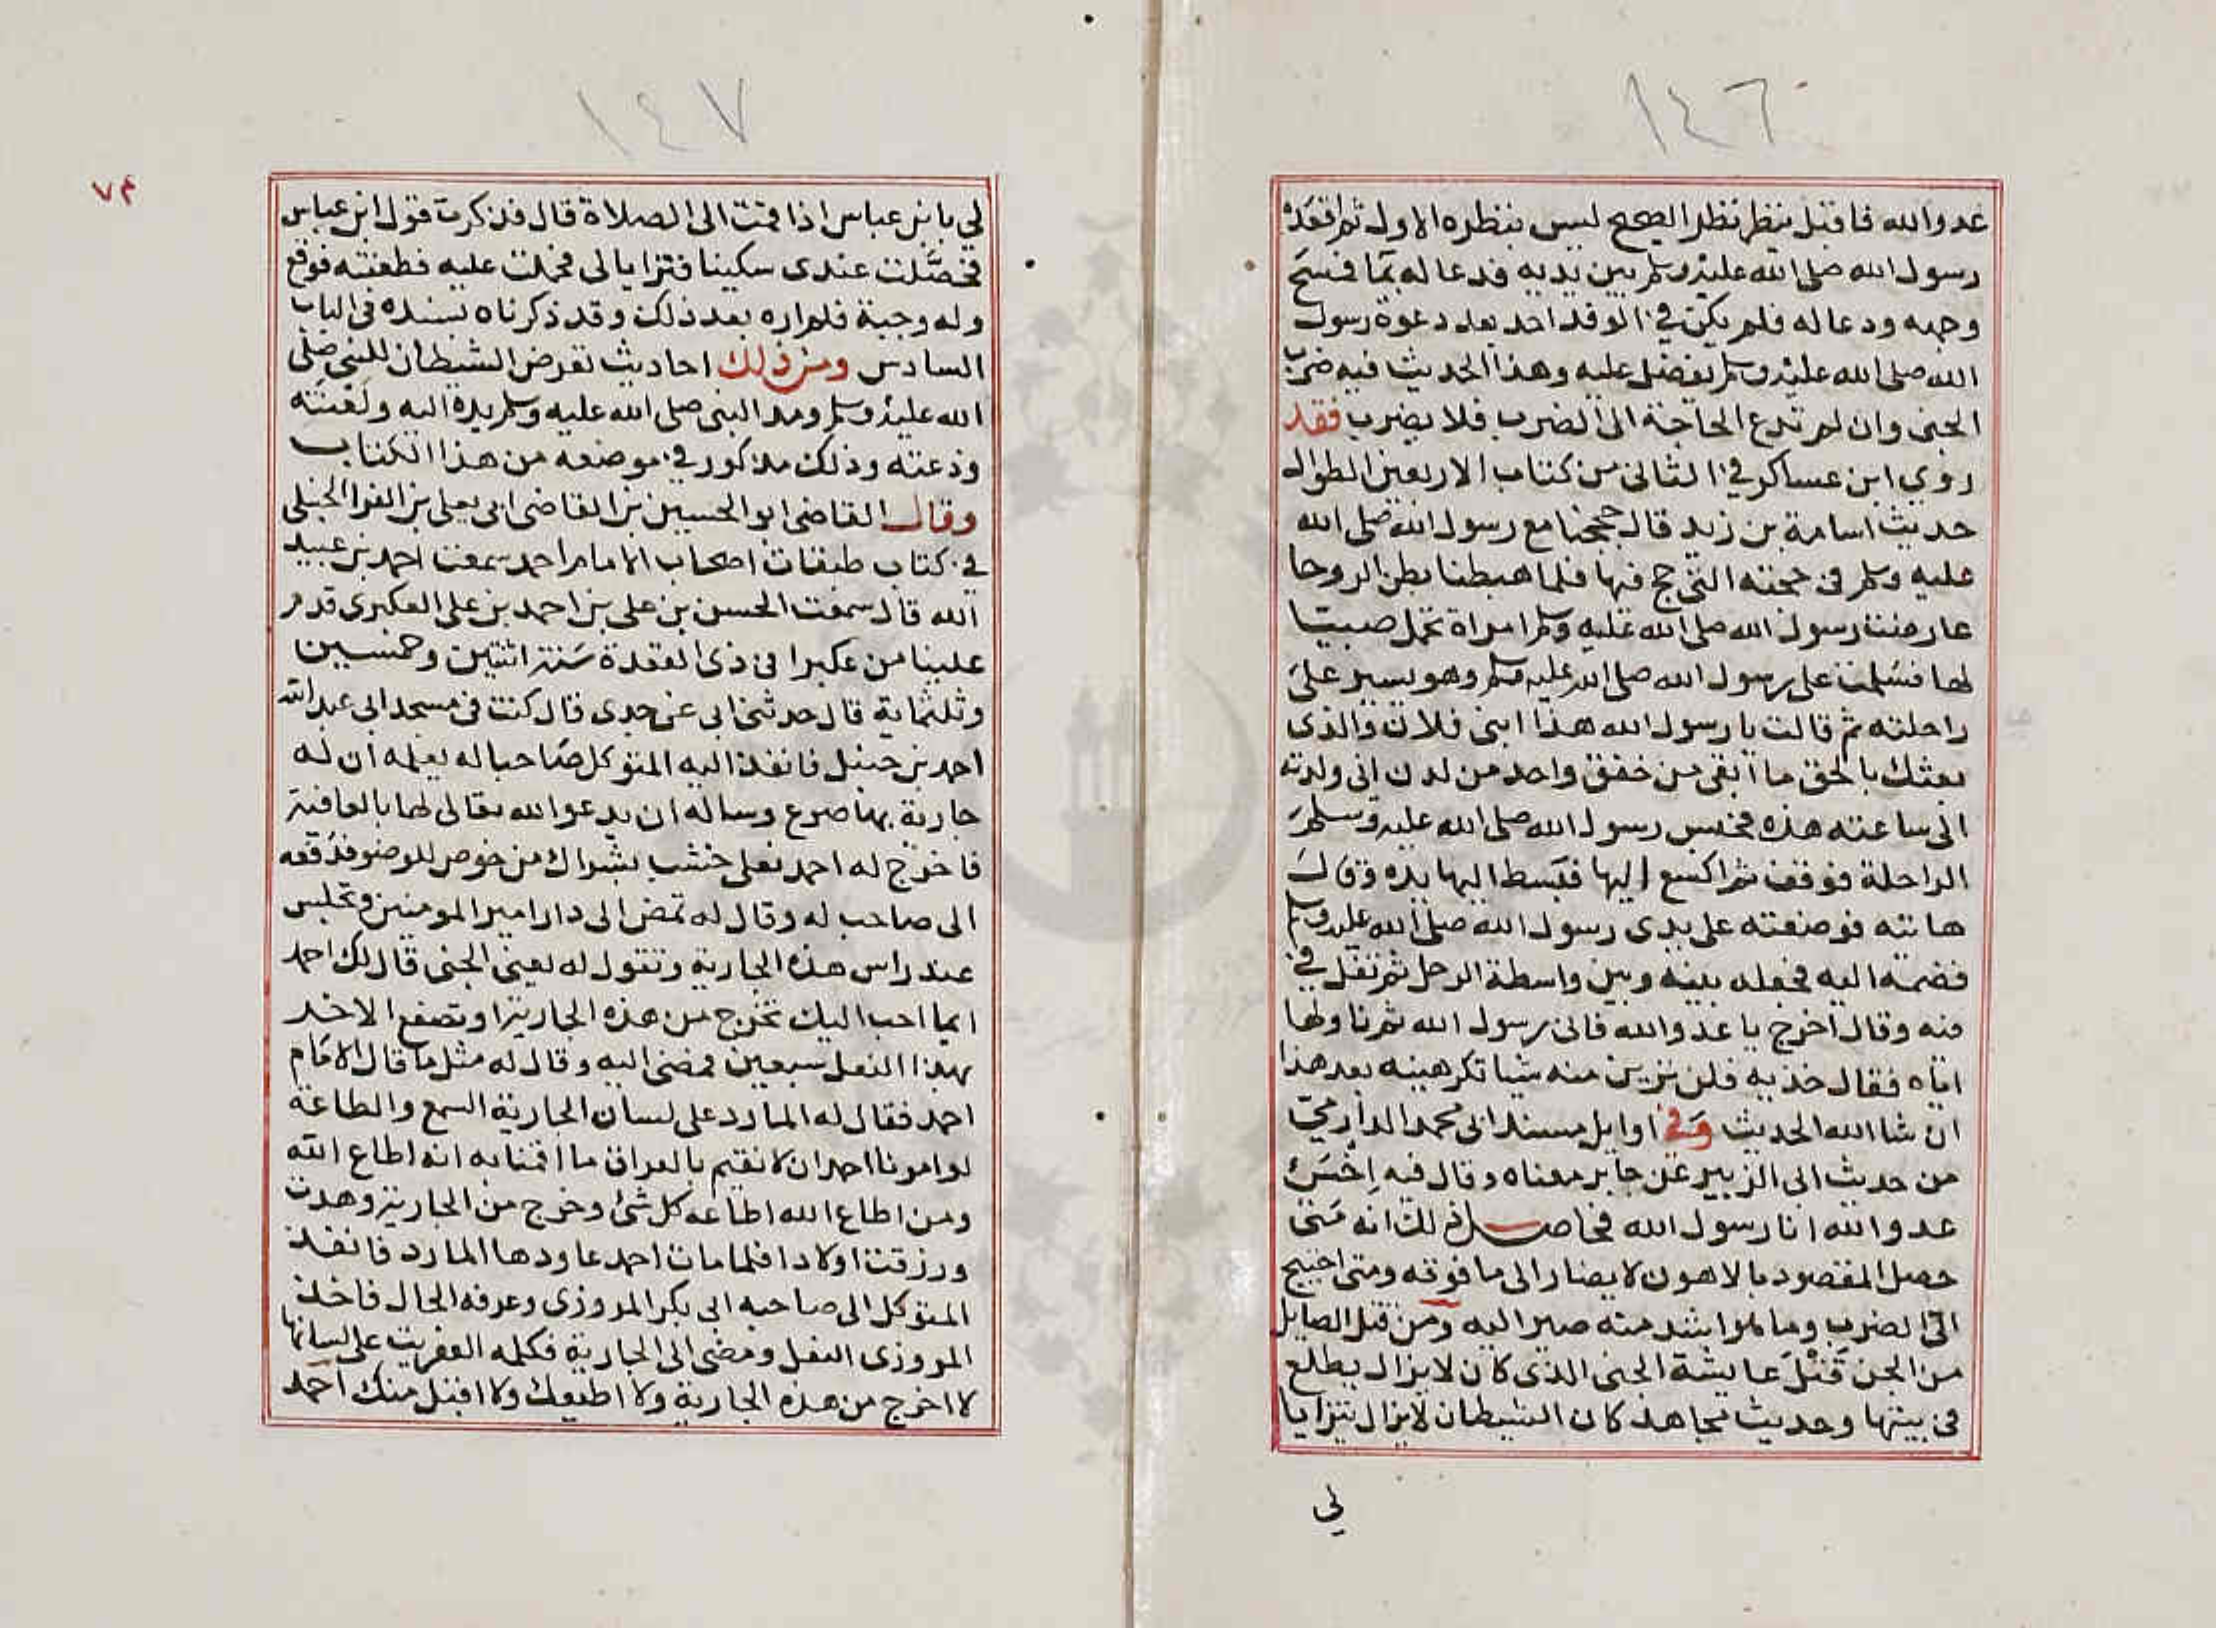 ١٤٦
عدو الله فاقبل ينظر نظر الصحيح ليس بنظره الاول ثم اقعده
رسول الله صلى الله عليه وسلم بين يديه فدعا له بما فمسح
وجهه ودعا له فلم يكن في الوفد احد بعد دعوة رسول
الله صلى الله عليه وسلم يفضل عليه وهذا الحديث فيه ضرب
الجنى وان لم تدع الحاجة الى الضرب فلا يضرب فقد
روي ابن عساكر في الثانى من كتاب الاربعين الطوال
حديث اسامة بن زيد قال حججنا مع رسول الله صلى الله
عليه وسلم فى حجته التى حج فيها فلما هبطنا بطن الروحا
عارضت رسول الله صلى الله عليه وسلم امراة تحمل صبيا
لها فسلمت على رسول الله صلى الله عليه وسلم وهو يسير على
راحلته ثم قالت يا رسول الله هذا ابنى فلان والذى
بعثك بالحق ما ابقى من خفق واحد من لدن انى ولدته
الى ساعته هذه فحبس رسول الله صلى الله عليه وسلم
الراحلة فوقف ثم اكسع اليها فبسط اليها يده وقال
هاته فوضعته على يدى رسول الله صلى الله عليه وسلم
فضمه اليه فجعله بينه وبين واسطة الرحل ثم تفل في
فيه وقال اخرج يا عدو الله فانى رسول الله ثم ناولها
اياه فقال خذيه فلن ترين منه شيا تكرهينه بعد هذا
ان شا الله الحديث وفي اوايل مسند ابى محمد الدارمي
من حديث ابى الزبير عن جابر معناه وقال فيه اخس
عدو الله انا رسول الله فحاصل ذلك انه متى
حصل المقصود بالاهون لا يصار الى ما فوقه ومتى احتيج
الى الضرب وما هو اشد منه صير اليه ومن قتل الصايل
من الجن قتل عايشة الجنى الذى كان لا يزال يطلع
فى بيتها وحديث مجاهد كان الشيطان لا يزال يتزايا
لي
١٤٧
٧٣
لي بابن عباس اذا قمت الى الصلاة قال فذكرت قول ابن عباس
فحصلت عندى سكينا فتزايا لى فحملت عليه فطعنته فوقع
وله وجبة فلم اره بعد ذلك وقد ذكرناه بسنده فى الباب
السادس ومن ذلك احاديث تعرض الشيطان للنبى صلى
الله عليه وسلم ومد النبى صلى الله عليه وسلم يده اليه ولعنته
وذعته وذلك مذكور في موضعه من هذا الكتاب
وقال القاضى ابو الحسين بن القاضى ابى يعلى بن الفرا الحنبلى
في كتاب طبقات اصحاب الامام احمد سمعت احمد بن عبيد
الله قال سمعت الحسن بن على بن احمد بن على العكبرى قدم
علينا من عكبرا فى ذى القعدة سنة اثنتين وخمسين
وثلثماية قال حدثنى ابى عن جدى قال كنت فى مسجد ابى عبد الله
احمد بن حنبل فانفذ اليه المتوكل صاحبا له يعلمه ان له
جارية بها صرع وساله ان يدعو الله تعالى لها بالعافية
فاخرج له احمد نعلى خشب بشراك من خوص للوضو فدفعه
الى صاحب له وقال له تمض الى دار امير المومنين وتجلس
عند راس هذه الجارية وتقول له يعنى الجنى قال لك احمد
ايما احب اليك تخرج من هذه الجارية او تصفع الاخد
بهذا النعل سبعين فمضى اليه وقال له مثل ما قال الامام
احمد فقال له المارد على لسان الجارية السمع والطاعة
لو امرنا احمد ان لا نقيم بالعراق ما اقمنا به انه اطاع الله
ومن اطاع الله اطاعه كل شئ وخرج من الجارية وهدت
ورزقت اولادا فلما مات احمد عاودها المارد فانفذ
المتوكل الى صاحبه ابى بكر المروزى وعرفه الحال فاخذ
المروزى النعل ومضى الى الجارية فكلمه العفريت على لسانها
لا اخرج من هذه الجارية ولا اطيعك ولا اقبل منك احمد